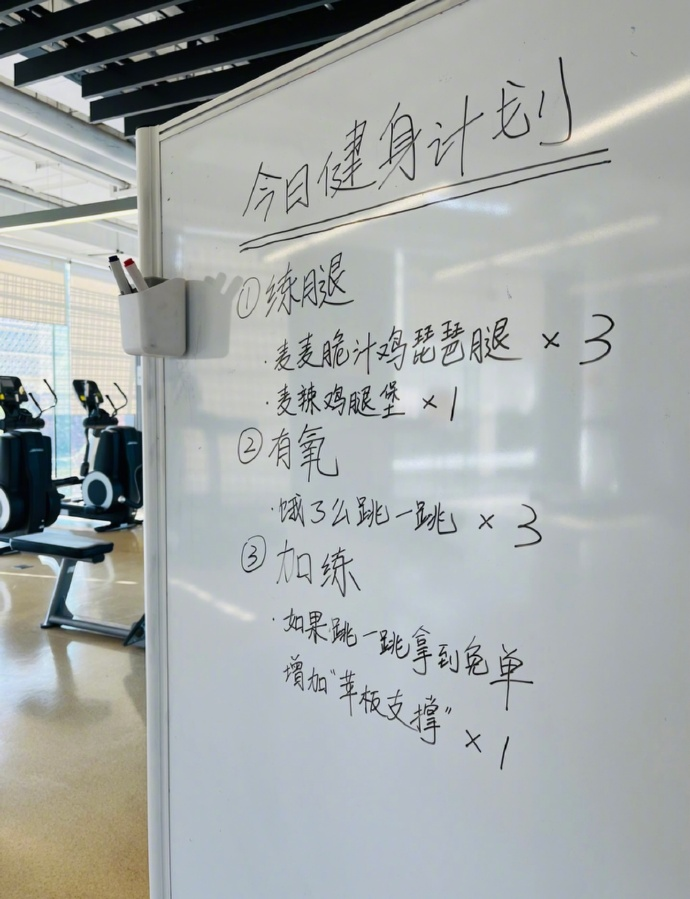 今日健身计划
①练腿
·麦麦脆汁鸡琵琶腿 × 3
·麦辣鸡腿堡 × 1
②有氧
·饿了么跳一跳 × 3
③加练
·如果跳一跳拿到免单
增加“苹板支撑” × 1